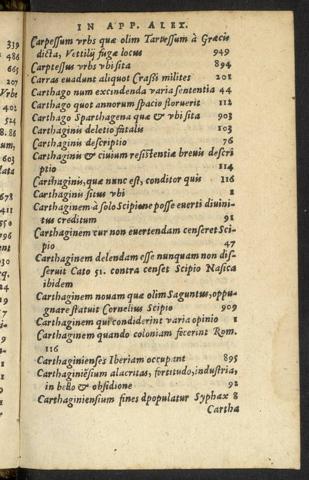 IN APP. ALEX.
Carpessum vrbs quæ olim Tartessum à Græcis
dicta, Vettilij fugæ locus 949
Carptessus vrbs vbi sita 894
Carras euadunt aliquot Crassi milites 201
Carthago num excindenda varia sententia 44
Carthago quot annorum spacio floruerit 112
Carthago Sparthagena quæ & vbi sita 903
Carthaginis deletio fatalis 103
Carthaginis descriptio 76
Carthaginis & ciuium resistentiæ breuis descri
ptio 114
Carthaginis, quæ nunc est, conditor quis 116
Carthaginis situs vbi 1
Carthaginem à solo Scipione posse euerti diuini-
tus creditum 91
Carthaginem cur non euertendam censeret Sci-
pio 47
Carthaginem delendam esse nunquam non dis-
seruit Cato 51. contra censet Scipio Nasica
ibidem
Carthaginem nouam quæ olim Saguntus, oppu-
gnare statuit Cornelius Scipio 909
Carthaginem qui condiderint varia opinio 1
Carthaginem quando coloniam fecerint Rom.
116
Carthaginenses Iberiam occupant 895
Carthaginēsium alacritas, fortitudo, industria,
in bello & obsidione 92
Carthaginensium fines dpopulatur Syphax 8
Cartha
339
486
665
657
Vrbe
402
524
8.86
653
678
411
550